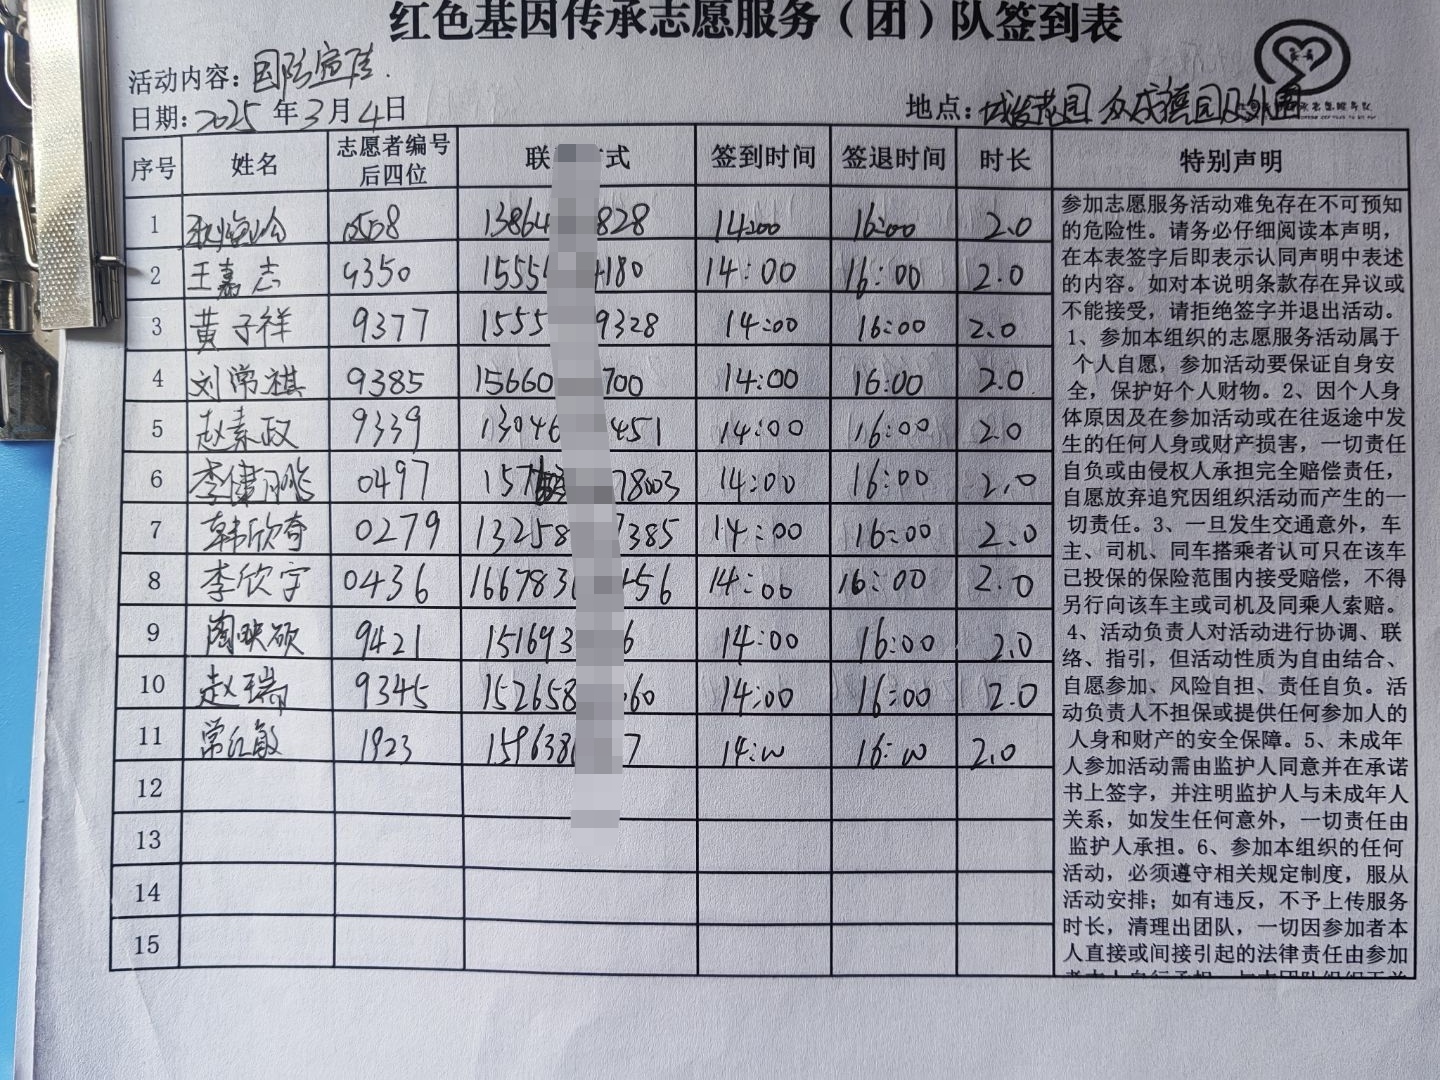 红色基因传承志愿服务（团）队签到表
活动内容：国防宣传.
日期：2025年3月4日 地点：花园 众成德园及外围
序号 姓名 志愿者编号后四位 联 方式 签到时间 签退时间 时长 特别声明
1 0508 13864 828 14:00 16:00 2.0
2 王嘉志 9350 1555 180 14:00 16:00 2.0
3 黄子祥 9377 1555 9328 14:00 16:00 2.0
4 刘常祺 9385 15660 700 14:00 16:00 2.0
5 赵素政 9339 13046 451 14:00 16:00 2.0
6 李健鹏 0497 157 78003 14:00 16:00 2.0
7 韩欣奇 0279 13258 7385 14:00 16:00 2.0
8 李欣宇 0436 166783 456 14:00 16:00 2.0
9 陶映硕 9421 151693 6 14:00 16:00 2.0
10 赵瑞 9345 152658 60 14:00 16:00 2.0
11 常红敏 1923 159638 7 14:00 16:00 2.0
12
13
14
15
参加志愿服务活动难免存在不可预知
的危险性。请务必仔细阅读本声明，
在本表签字后即表示认同声明中表述
的内容。如对本说明条款存在异议或
不能接受，请拒绝签字并退出活动。
1、参加本组织的志愿服务活动属于
个人自愿，参加活动要保证自身安
全，保护好个人财物。2、因个人身
体原因及在参加活动或在往返途中发
生的任何人身或财产损害，一切责任
自负或由侵权人承担完全赔偿责任，
自愿放弃追究因组织活动而产生的一
切责任。3、一旦发生交通意外，车
主、司机、同车搭乘者认可只在该车
已投保的保险范围内接受赔偿，不得
另行向该车主或司机及同乘人索赔。
4、活动负责人对活动进行协调、联
络、指引，但活动性质为自由结合、
自愿参加、风险自担、责任自负。活
动负责人不担保或提供任何参加人的
人身和财产的安全保障。5、未成年
人参加活动需由监护人同意并在承诺
书上签字，并注明监护人与未成年人
关系，如发生任何意外，一切责任由
监护人承担。6、参加本组织的任何
活动，必须遵守相关规定制度，服从
活动安排；如有违反，不予上传服务
时长，清理出团队，一切因参加者本
人直接或间接引起的法律责任由参加